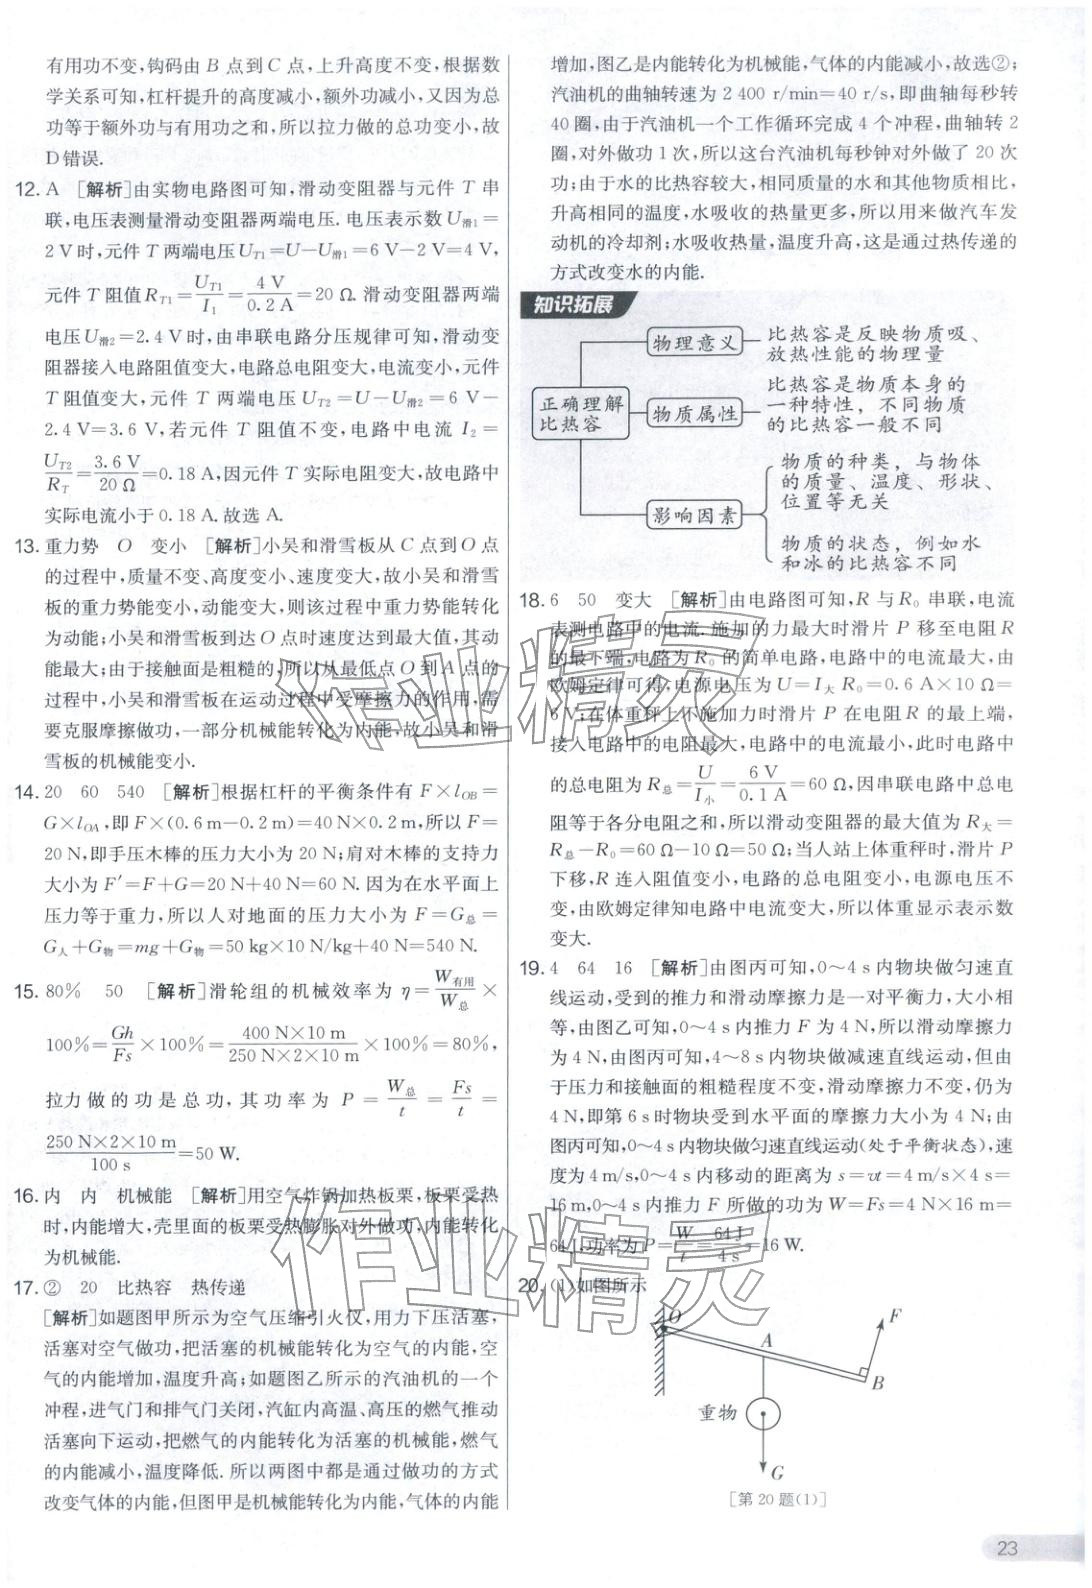 有用功不变,钩码由 B 点到 C 点,上升高度不变,根据数
学关系可知,杠杆提升的高度减小,额外功减小,又因为总
功等于额外功与有用功之和,所以拉力做的总功变小,故
D 错误.
12. A [解析]由实物电路图可知,滑动变阻器与元件 T 串
联,电压表测量滑动变阻器两端电压. 电压表示数 U滑1=
2 V 时,元件 T 两端电压 UT1=U−U滑1=6 V−2 V=4 V,
元件 T 阻值 RT1=UT1/I1=4 V/0.2 A=20 Ω. 滑动变阻器两端
电压 U滑2=2.4 V 时,由串联电路分压规律可知,滑动变
阻器接入电路阻值变大,电路总电阻变大,电流变小,元件
T 阻值变大,元件 T 两端电压 UT2=U−U滑2=6 V−
2.4 V=3.6 V,若元件 T 阻值不变,电路中电流 I2=
UT2/RT=3.6 V/20 Ω=0.18 A,因元件 T 实际电阻变大,故电路中
实际电流小于 0.18 A. 故选 A.
13. 重力势 O 变小 [解析]小吴和滑雪板从 C 点到 O 点
的过程中,质量不变、高度变小、速度变大,故小吴和滑雪
板的重力势能变小,动能变大,则该过程中重力势能转化
为动能;小吴和滑雪板到达 O 点时速度达到最大值,其动
能最大;由于接触面是粗糙的,所以从最低点 O 到 A 点的
过程中,小吴和滑雪板在运动过程中受摩擦力的作用,需
要克服摩擦做功,一部分机械能转化为内能,故小吴和滑
雪板的机械能变小.
14. 20 60 540 [解析]根据杠杆的平衡条件有 F×lOB=
G×lOA,即 F×(0.6 m−0.2 m)=40 N×0.2 m,所以 F=
20 N,即手压木棒的压力大小为 20 N;肩对木棒的支持力
大小为 F′=F+G=20 N+40 N=60 N. 因为在水平面上
压力等于重力,所以人对地面的压力大小为 F=G总=
G人+G物=mg+G物=50 kg×10 N/kg+40 N=540 N.
15. 80% 50 [解析]滑轮组的机械效率为 η=W有用/W总×
100%=Gh/Fs×100%=400 N×10 m/250 N×2×10 m×100%=80%,
拉力做的功是总功,其功率为 P=W总/t=Fs/t=
250 N×2×10 m/100 s=50 W.
16. 内 内 机械能 [解析]用空气炸锅加热板栗,板栗受热
时,内能增大,壳里面的板栗受热膨胀对外做功,内能转化
为机械能.
17. ② 20 比热容 热传递
[解析]如题图甲所示为空气压缩引火仪,用力下压活塞,
活塞对空气做功,把活塞的机械能转化为空气的内能,空
气的内能增加,温度升高;如题图乙所示的汽油机的一个
冲程,进气门和排气门关闭,汽缸内高温、高压的燃气推动
活塞向下运动,把燃气的内能转化为活塞的机械能,燃气
的内能减小,温度降低. 所以两图中都是通过做功的方式
改变气体的内能,但图甲是机械能转化为内能,气体的内能
增加,图乙是内能转化为机械能,气体的内能减小,故选②;
汽油机的曲轴转速为 2 400 r/min=40 r/s,即曲轴每秒转
40圈,由于汽油机一个工作循环完成 4 个冲程,曲轴转 2
圈,对外做功 1 次,所以这台汽油机每秒钟对外做了 20 次
功;由于水的比热容较大,相同质量的水和其他物质相比,
升高相同的温度,水吸收的热量更多,所以用来做汽车发
动机的冷却剂;水吸收热量,温度升高,这是通过热传递的
方式改变水的内能.
知识拓展
正确理解
比热容
物理意义
比热容是反映物质吸、
放热性能的物理量
物质属性
比热容是物质本身的
一种特性,不同物质
的比热容一般不同
影响因素
物质的种类,与物体
的质量、温度、形状、
位置等无关
物质的状态,例如水
和冰的比热容不同
18. 6 50 变大 [解析]由电路图可知,R 与 R0 串联,电流
表测电路中的电流. 施加的力最大时滑片 P 移至电阻 R
的最下端,电路为 R0 的简单电路,电路中的电流最大,由
欧姆定律可得,电源电压为 U=I大 R0=0.6 A×10 Ω=
6 V;在体重秤上不施加力时滑片 P 在电阻 R 的最上端,
接入电路中的电阻最大,电路中的电流最小,此时电路中
的总电阻为 R总=U/I小=6 V/0.1 A=60 Ω,因串联电路中总电
阻等于各分电阻之和,所以滑动变阻器的最大值为 R大=
R总−R0=60 Ω−10 Ω=50 Ω;当人站上体重秤时,滑片 P
下移,R 连入阻值变小,电路的总电阻变小,电源电压不
变,由欧姆定律知电路中电流变大,所以体重显示表示数
变大.
19. 4 64 16 [解析]由图丙可知,0~4 s内物块做匀速直
线运动,受到的推力和滑动摩擦力是一对平衡力,大小相
等,由图乙可知,0~4 s内推力 F 为 4 N,所以滑动摩擦力
为 4 N,由图丙可知,4~8 s内物块做减速直线运动,但由
于压力和接触面的粗糙程度不变,滑动摩擦力不变,仍为
4 N,即第 6 s时物块受到水平面的摩擦力大小为 4 N;由
图丙可知,0~4 s内物块做匀速直线运动(处于平衡状态),速
度为 4 m/s,0~4 s内移动的距离为 s=vt=4 m/s×4 s=
16 m,0~4 s内推力 F 所做的功为 W=Fs=4 N×16 m=
64 J,功率为 P=W/t=64 J/4 s=16 W.
20. (1)如图所示
O
A
F
B
重物
G
[第 20 题(1)]
23
作业精灵
作业精灵